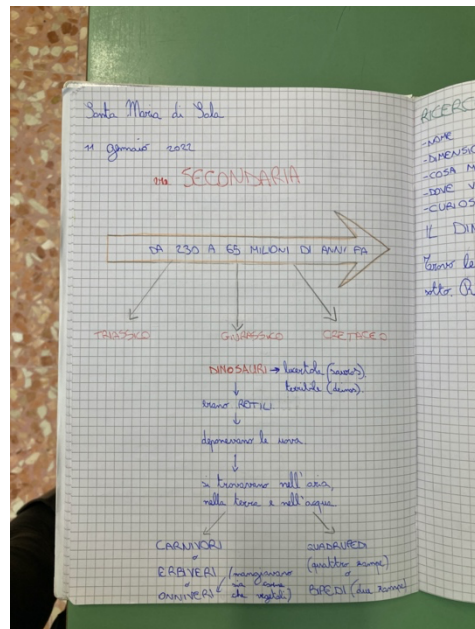 Santa Maria di Sala
11 gennaio 2022
era SECONDARIA
DA 230 A 65 MILIONI DI ANNI FA
TRIASSICO GIURASSICO CRETACEO
DINOSAURI → lucertola (sauros)
terribile (deinos)
erano RETTILI
deponevano le uova
si trovavano nell'aria,
nella terra e nell'acqua
CARNIVORI
o
ERBIVERI
o
ONNIVERI (mangiavano
sia carne
che vegetali)
QUADRUPEDI
(quattro zampe)
o
BIPEDI (due zampe)
RICERC
-NOME
-DIMENSIO
-COSA M
-DOVE V
-CURIOS
IL DIN
le
sotto. R